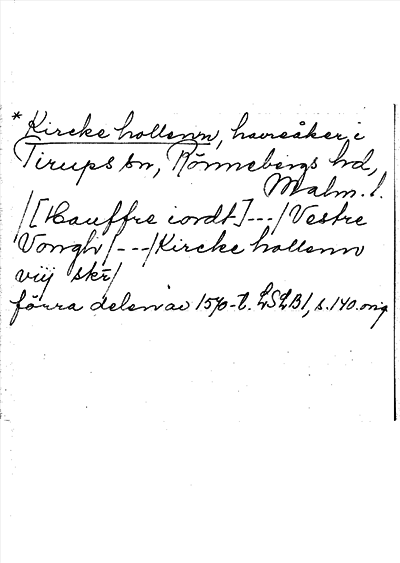 * Kircke hollenn, havreåker i
Tirups sn, Rönnebergs hd,
Malm. l.
/[Hauffre iordt]---/Vestre
Vongh/---/Kircke hollenn
viij skr/
förra delen av 1570-t. LSLB1, s.140.orig.